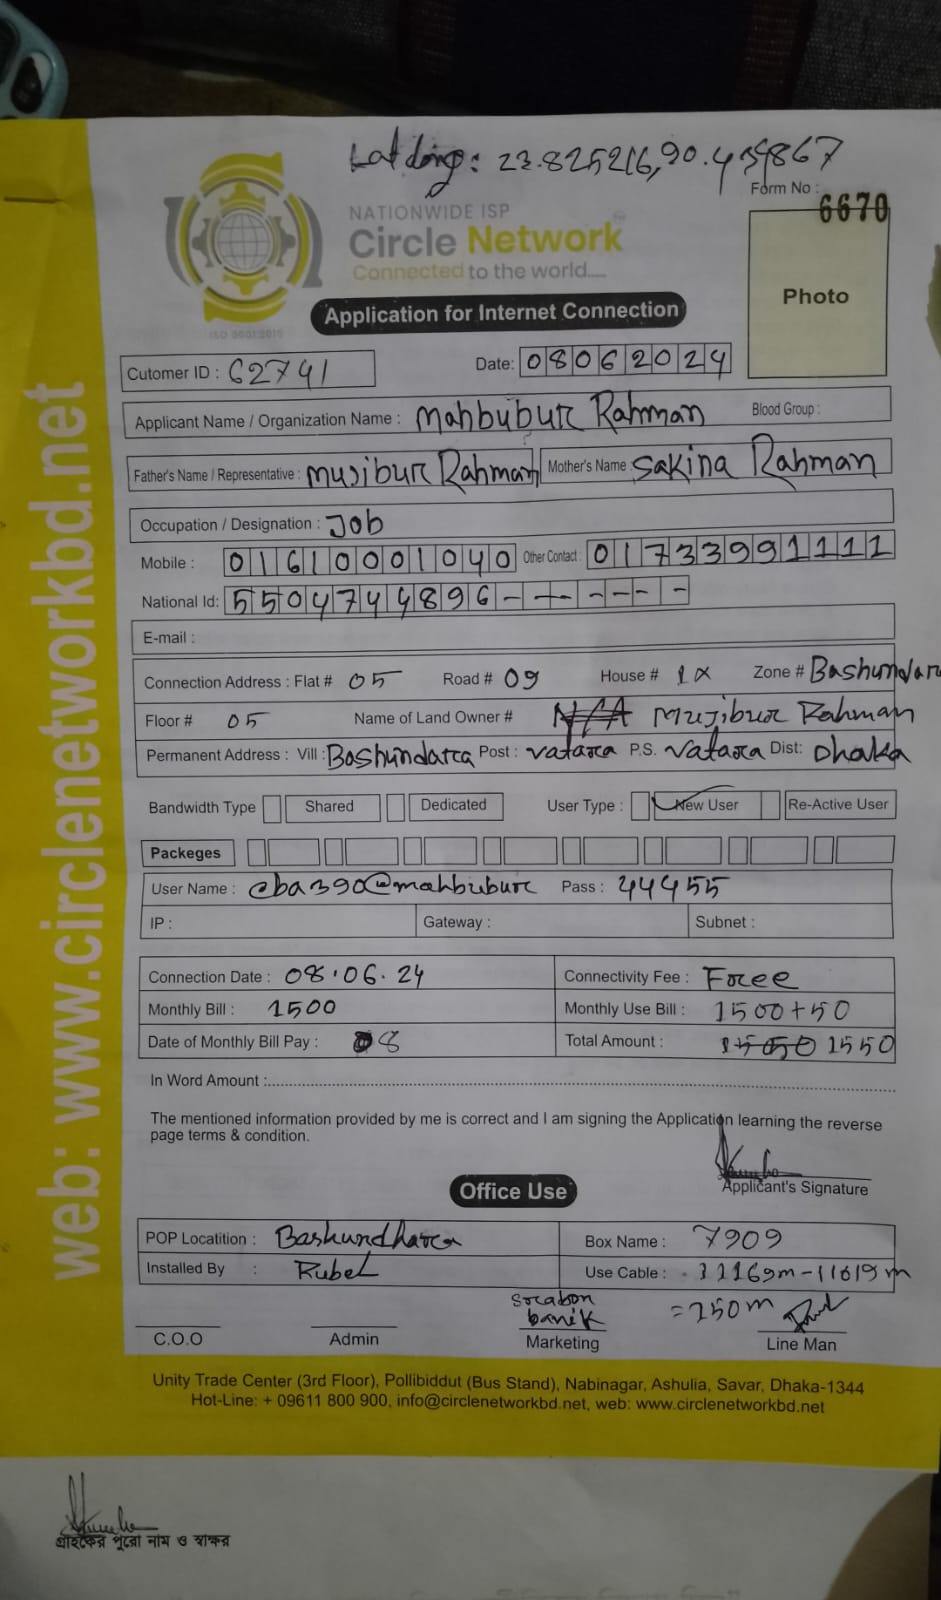 Lat long: 23.825216, 90.434867
Form No : 6670
NATIONWIDE ISP
Circle Network
Connected to the world....
ISO 9001:2015
Photo
Application for Internet Connection
Cutomer ID : 62741 Date: 08062024
Applicant Name / Organization Name : Mahbubur Rahman Blood Group :
Father's Name / Representative : Mujibur Rahman Mother's Name : Sakina Rahman
Occupation / Designation : Job
Mobile : 01610001040 Other Contact : 01733991111
National Id: 5504744896- - - - - - -
E-mail :
Connection Address : Flat # 05 Road # 09 House # Zone # Bashundara
Floor # 05 Name of Land Owner # N/A Mujibur Rahman
Permanent Address : Vill : Bashundara Post : Vatara P.S. Vatara Dist: Dhaka
Bandwidth Type Shared Dedicated User Type : New User Re-Active User
Packeges
User Name : cba390@mahbubur Pass : 44455
IP : Gateway : Subnet :
Connection Date : 08.06.24 Connectivity Fee : Free
Monthly Bill : 1500 Monthly Use Bill : 1500+50
Date of Monthly Bill Pay : 8 Total Amount : 1550
In Word Amount :
The mentioned information provided by me is correct and I am signing the Application learning the reverse
page terms & condition.
Applicant's Signature
Office Use
POP Locatition : Bashundhara Box Name : 7909
Installed By : Rubel Use Cable : -11619m
Srabon =250m
banik
C.O.O Admin Marketing Line Man
Unity Trade Center (3rd Floor), Pollibiddut (Bus Stand), Nabinagar, Ashulia, Savar, Dhaka-1344
Hot-Line: + 09611 800 900, info@circlenetworkbd.net, web: www.circlenetworkbd.net
web: www.circlenetworkbd.net
গ্রাহকের পুরো নাম ও স্বাক্ষর